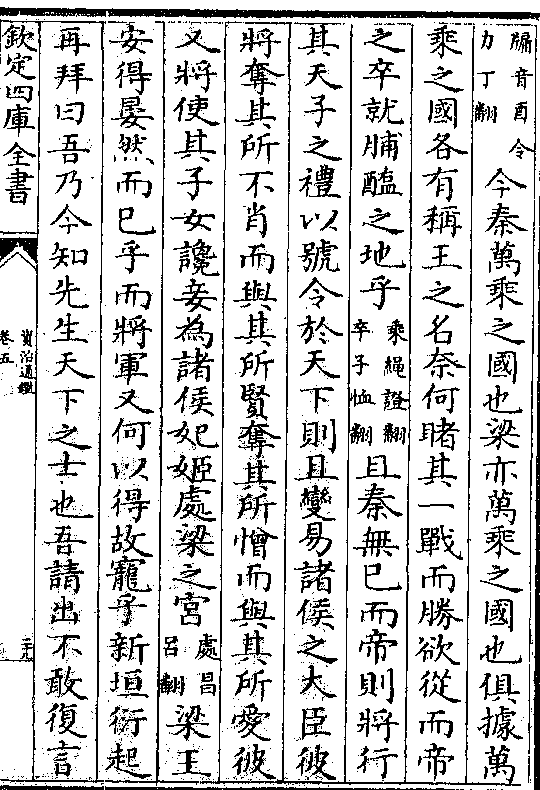 牖音酉令力丁翻今秦萬乘之國也梁亦萬乘之國也俱據萬
乘之國各有稱王之名奈何睹其一戰而勝欲從而帝
之卒就脯醢之地乎乘繩證翻卒子恤翻且秦無已而帝則將行
其天子之禮以號令於天下則且變易諸侯之大臣彼
將奪其所不肖而與其所賢奪其所憎而與其所愛彼
又將使其子女讒妾為諸侯妃姬處梁之宮處昌呂翻梁王
安得晏然而已乎而將軍又何以得故寵乎新垣衍起
再拜曰吾乃今知先生天下之士也吾請出不敢復言
欽定四庫全書
資治通鑑
卷五